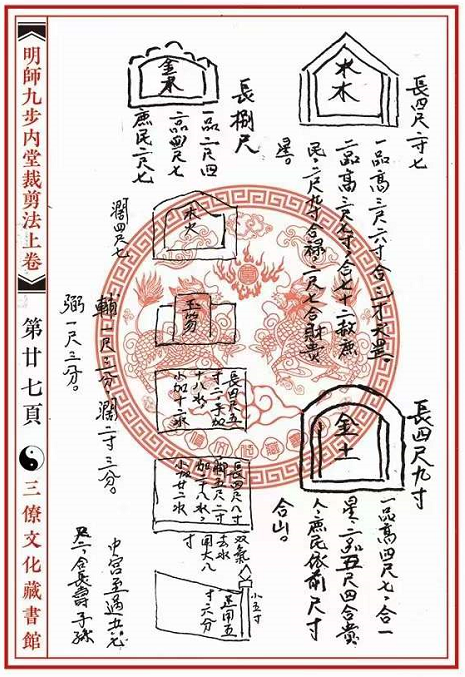 水木
長四尺二寸七
一品高三尺六寸合三才大畏
二品高三尺七寸合七十二赦庶
民二尺九寸合祿二尺七合財貴
星。
金土
長四尺九寸
一品高四尺七合一
星二品五尺四合貴
人庶民依前尺寸
合山。
金水
長捌尺
一品二尺四
二品四尺七
庶民二尺七
水火
濶四尺七
玉笏
輔一尺三分濶二寸三分。
弼一尺三分。
長四尺五
寸二寸加
十八水
小加十二水
長四尺八寸
脚五尺二寸
加二十八水
小加廿二水
双氣
去水
用大八
寸
小五寸
正用五
寸六分
中宮至過五尺
合長壽子孫
明師九步内堂裁剪法上卷
第廿七頁
三僚文化藏書館